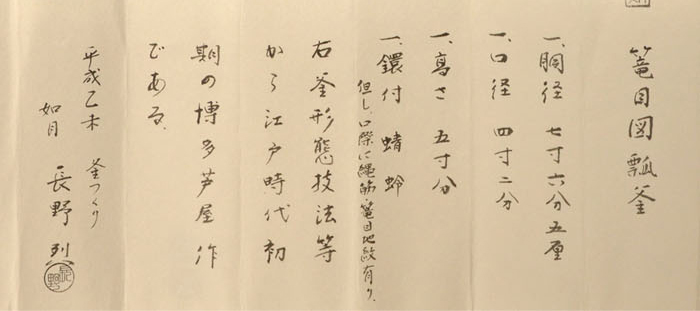 篭目図瓢釜
一、胴径 七寸六分五厘
一、口径 四寸二分
一、高さ 五寸分
一、鐶付 蜻蛉
但し、口際に縄筋、篭目地紋有り、
右釜形態技法等
から江戸時代初
期の博多芦屋作
である。
平成乙未 釜つくり
如月 長野 烈